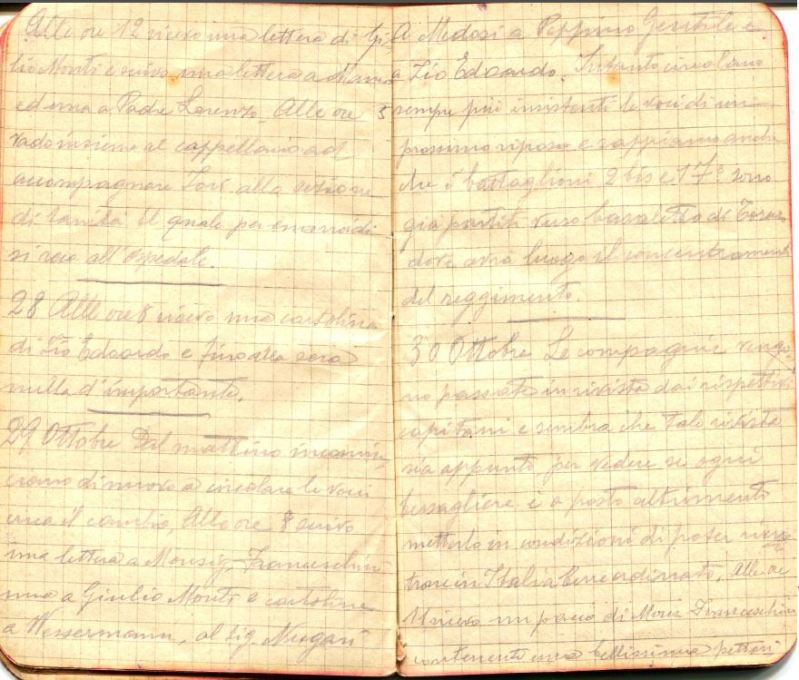 Alle ore 12 ricevo una lettera di Gi
lio Monti e scrivo una lettera a Mamma
ed una a Padre Lorenzo. Alle ore 5
vado insieme al cappellano ad
accompagnare Torr. alla sezione
di sanità il quale per emorroidi
si reca all'Ospedale.
28 Alle ore 8 ricevo una cartolina
di Zio Edoardo e fino alla sera
nulla d'importante.
29 Ottobre Dal mattino incomin
ciano di nuovo a circolare le voci
circa il cambio, Alle ore 8 scrivo
una lettera a Monsig. Franceschini
una a Giulio Monti e cartoline
a Wessermann, al Sig.
A Medosi a Peppino Gentile e
a Zio Edoardo. Intanto circolano
sempre più insistenti le voci di un
prossimo riposo e sappiamo anche
che i battaglioni 2 bis e 17º sono
già partiti verso
dove avrà luogo il concentramento
del reggimento.
30 Ottobre Le compagnie vengo
no passate in rivista dai rispettivi
capitani e sembra che tale rivista
sia appunto per vedere se ogni
bersagliere è a posto altrimenti
metterlo in condizioni di poter rien
trare in Italia bene ordinato, Alle ore
11 ricevo un pacco di Mons Franceschini
contenente una bellissima pettori